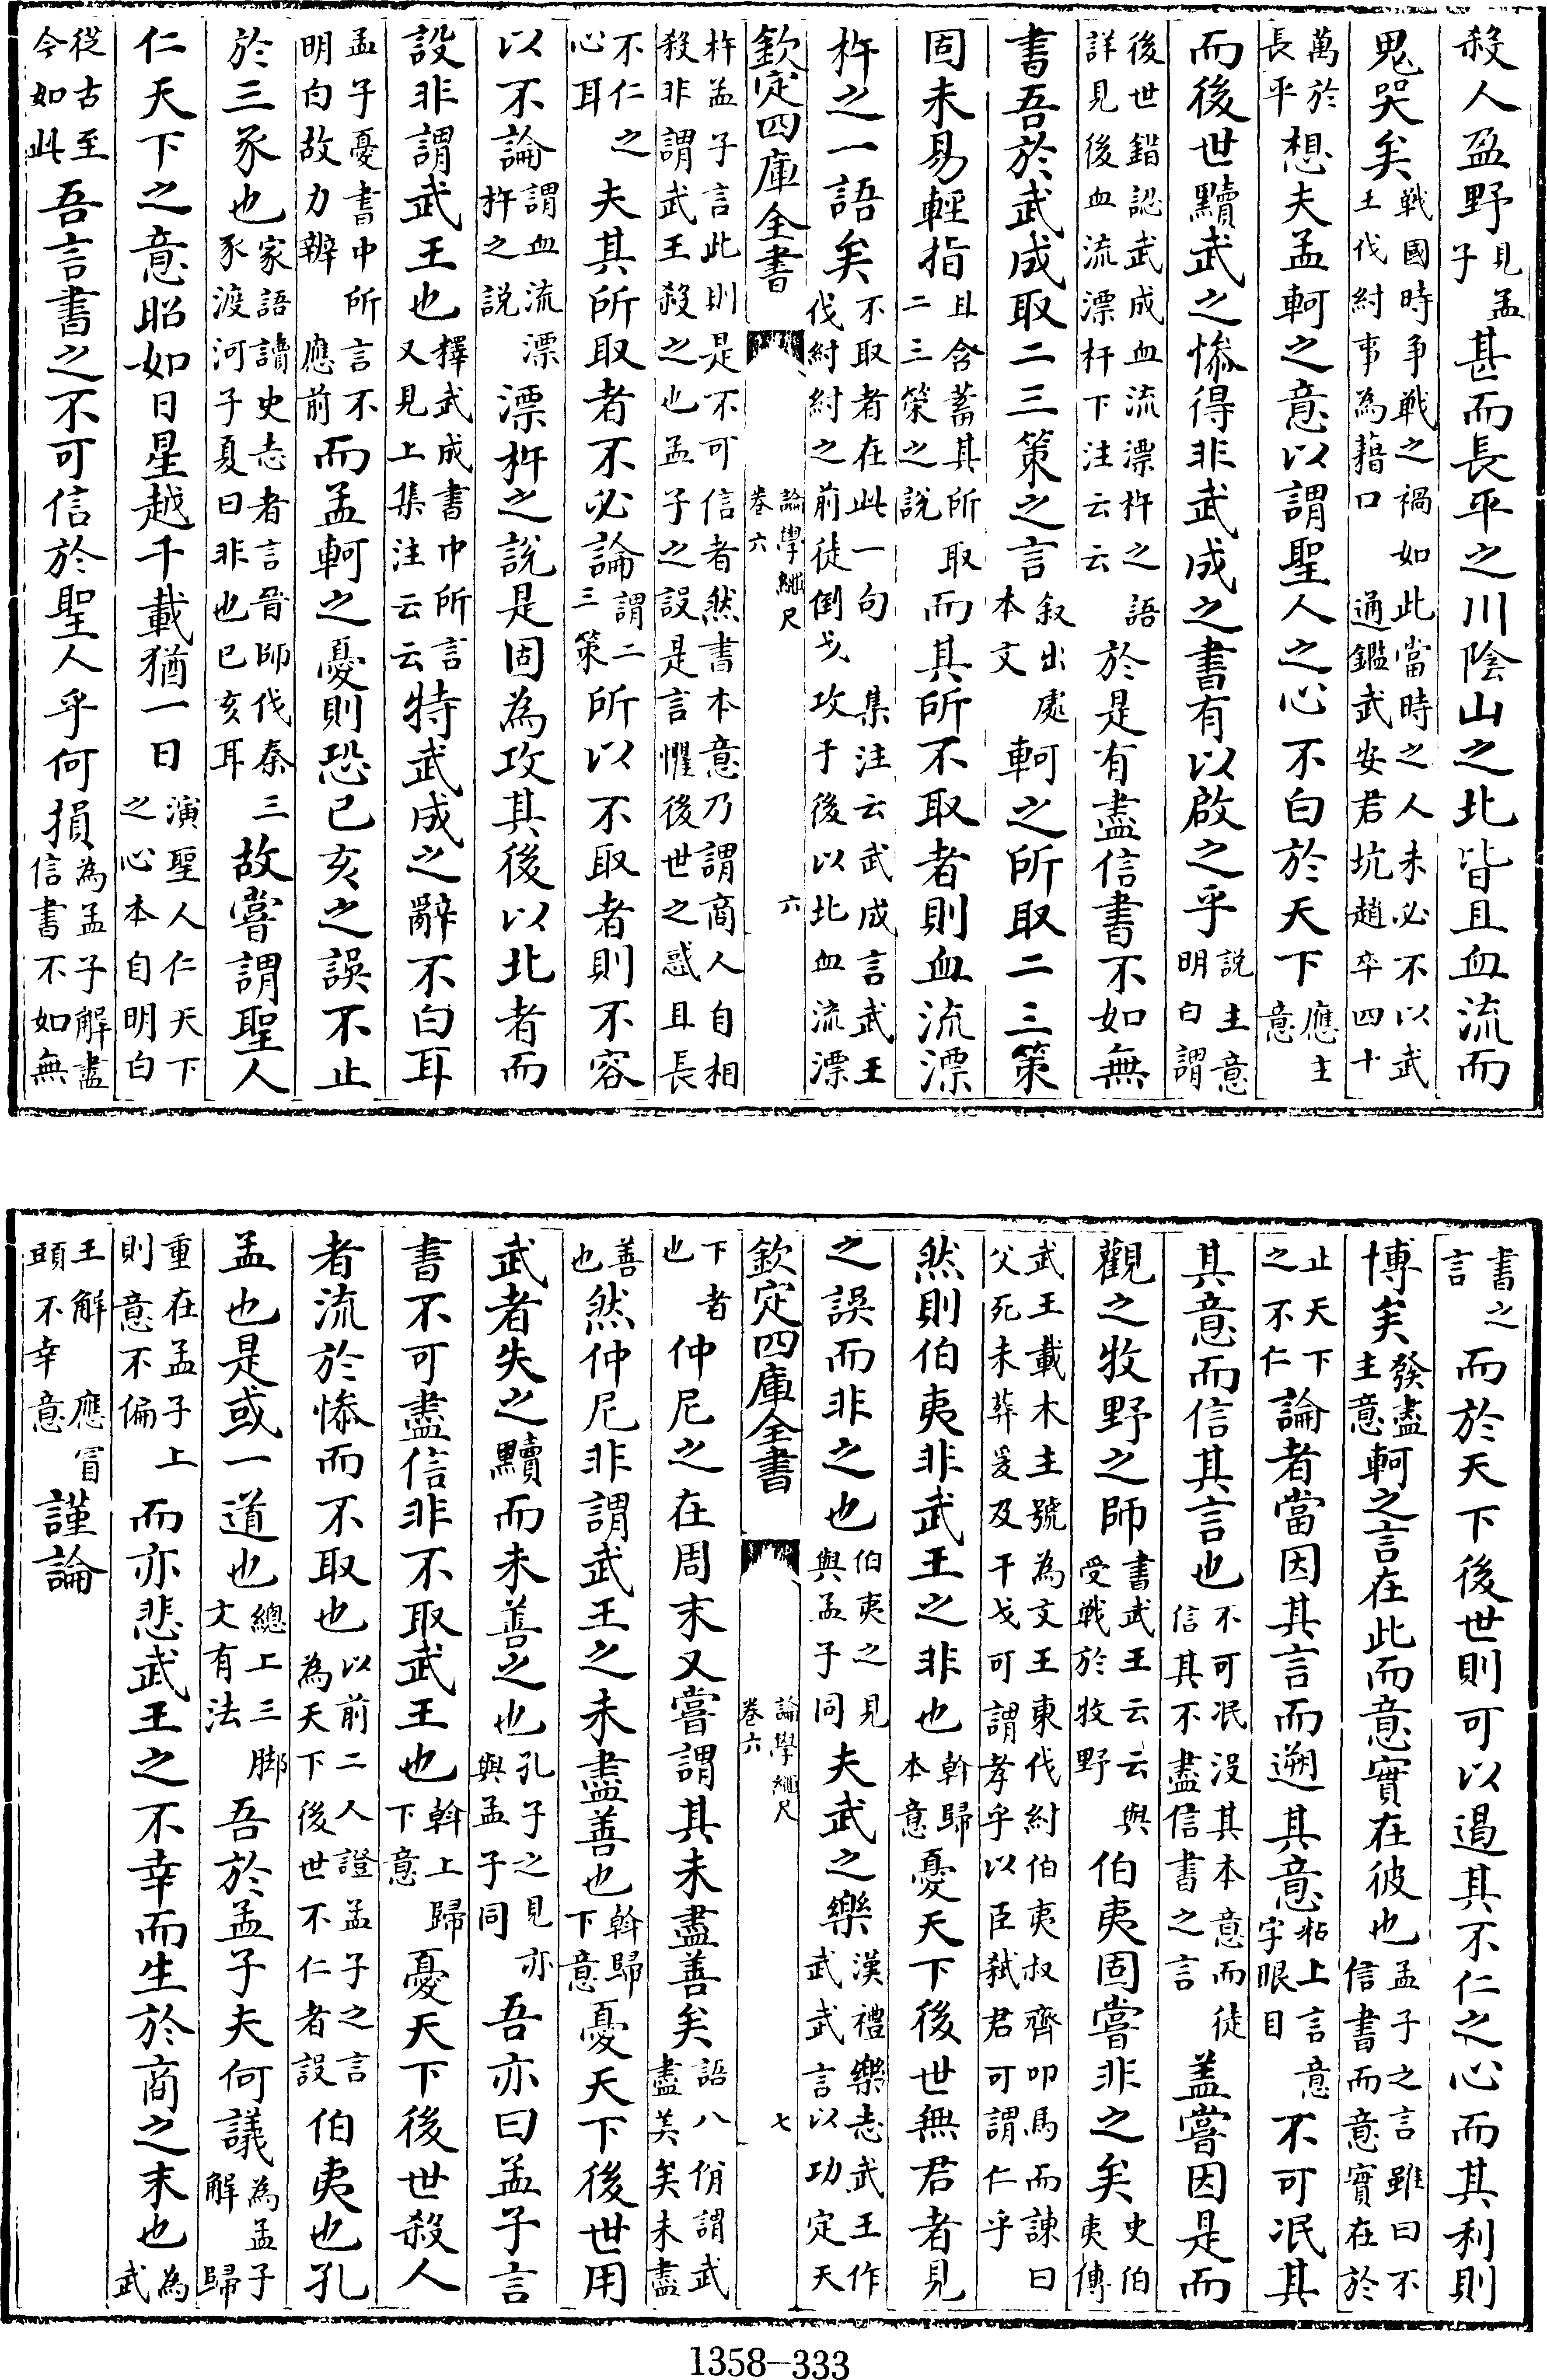 殺人盈野見孟子甚而長平之川陰山之北皆且血流而
鬼哭矣戰國時爭戰之禍如此當時之人未必不以武王伐紂事為藉口通鑑武安君坑趙卒四十
萬於長平想夫孟軻之意以謂聖人之心不白於天下應主意
而後世黷武之慘得非武成之書有以啟之乎說主意明白謂
後世錯認武成血流漂杵之語詳見後血流漂杆下注云云於是有盡信書不如無
書吾於武成取二三策之言叙出處本文軻之所取二三策
固未易輕指且含蓄其所取二三策之說而其所不取者則血流漂
杵之一語矣不取者在此一句集注云武成言武王伐紂紂之前徒倒戈攻于後以北血流漂
欽定四庫全書
論學繩尺
卷六
六
杵孟子言此則是不可信者然書本意乃謂商人自相殺非謂武王殺之也孟子之設是言懼後世之惑且長
不仁之心耳夫其所取者不必論謂二三策所以不取者則不容
以不論謂血流漂杵之說漂杵之說是固為攻其後以北者而
設非謂武王也擇武成書中所言又見上集注云云特武成之辭不白耳
孟子憂書中所言不明白故力辨應前而孟軻之憂則恐已亥之誤不止
於三豕也家語讀史志者言晉師伐秦三豕渡河子夏曰非也已亥耳故嘗謂聖人
仁天下之意昭如日星越千載猶一日演聖人仁天下之心本自明白
從古至今如此吾言書之不可信於聖人乎何損為孟子解盡信書不如無
書之言而於天下後世則可以遏其不仁之心而其利則
博矣發盡主意軻之言在此而意實在彼也孟子之言雖曰不信書而意實在於
止天下之不仁論者當因其言而遡其意粘上言意字眼目不可泯其
其意而信其言也不可泯沒其本意而徒信其不盡信書之言盖嘗因是而
觀之牧野之師書武王云云與受戰於牧野伯夷固嘗非之矣史伯夷傳
武王載木主號為文王東伐紂伯夷叔齊叩馬而諫曰父死未葬爰及干戈可謂孝乎以臣弒君可謂仁乎
然則伯夷非武王之非也斡歸本意憂天下後世無君者見
之誤而非之也伯夷之見與孟子同夫武之樂漢禮樂志武王作武武言以功定天
欽定四庫全書
論學繩尺
卷六
七
下者也仲尼之在周末又嘗謂其未盡善矣語八佾謂武盡美矣未盡
善也然仲尼非謂武王之未盡善也斡歸下意憂天下後世用
武者失之黷而未善之也孔子之見亦與孟子同吾亦曰孟子言
書不可盡信非不取武王也斡上歸下意憂天下後世殺人
者流於慘而不取也以前二人證孟子之言為天下後世不仁者設伯夷也孔
孟也是或一道也總上三脚文有法吾於孟子夫何議為孟子解歸
重在孟子上則意不偏而亦悲武王之不幸而生於商之末也為武
王解應冒頭不幸意謹論
1358-333